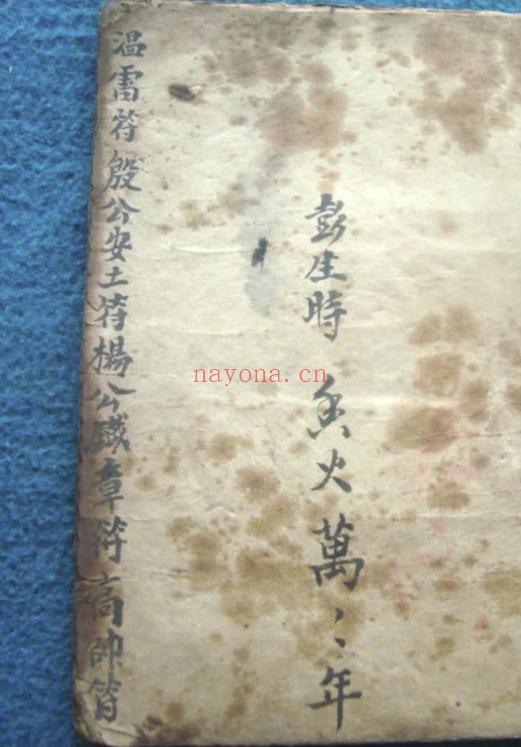 彭生時 香火萬〻年
温雷符殷公安土符楊公鐵章符高帥符
nayona.cn